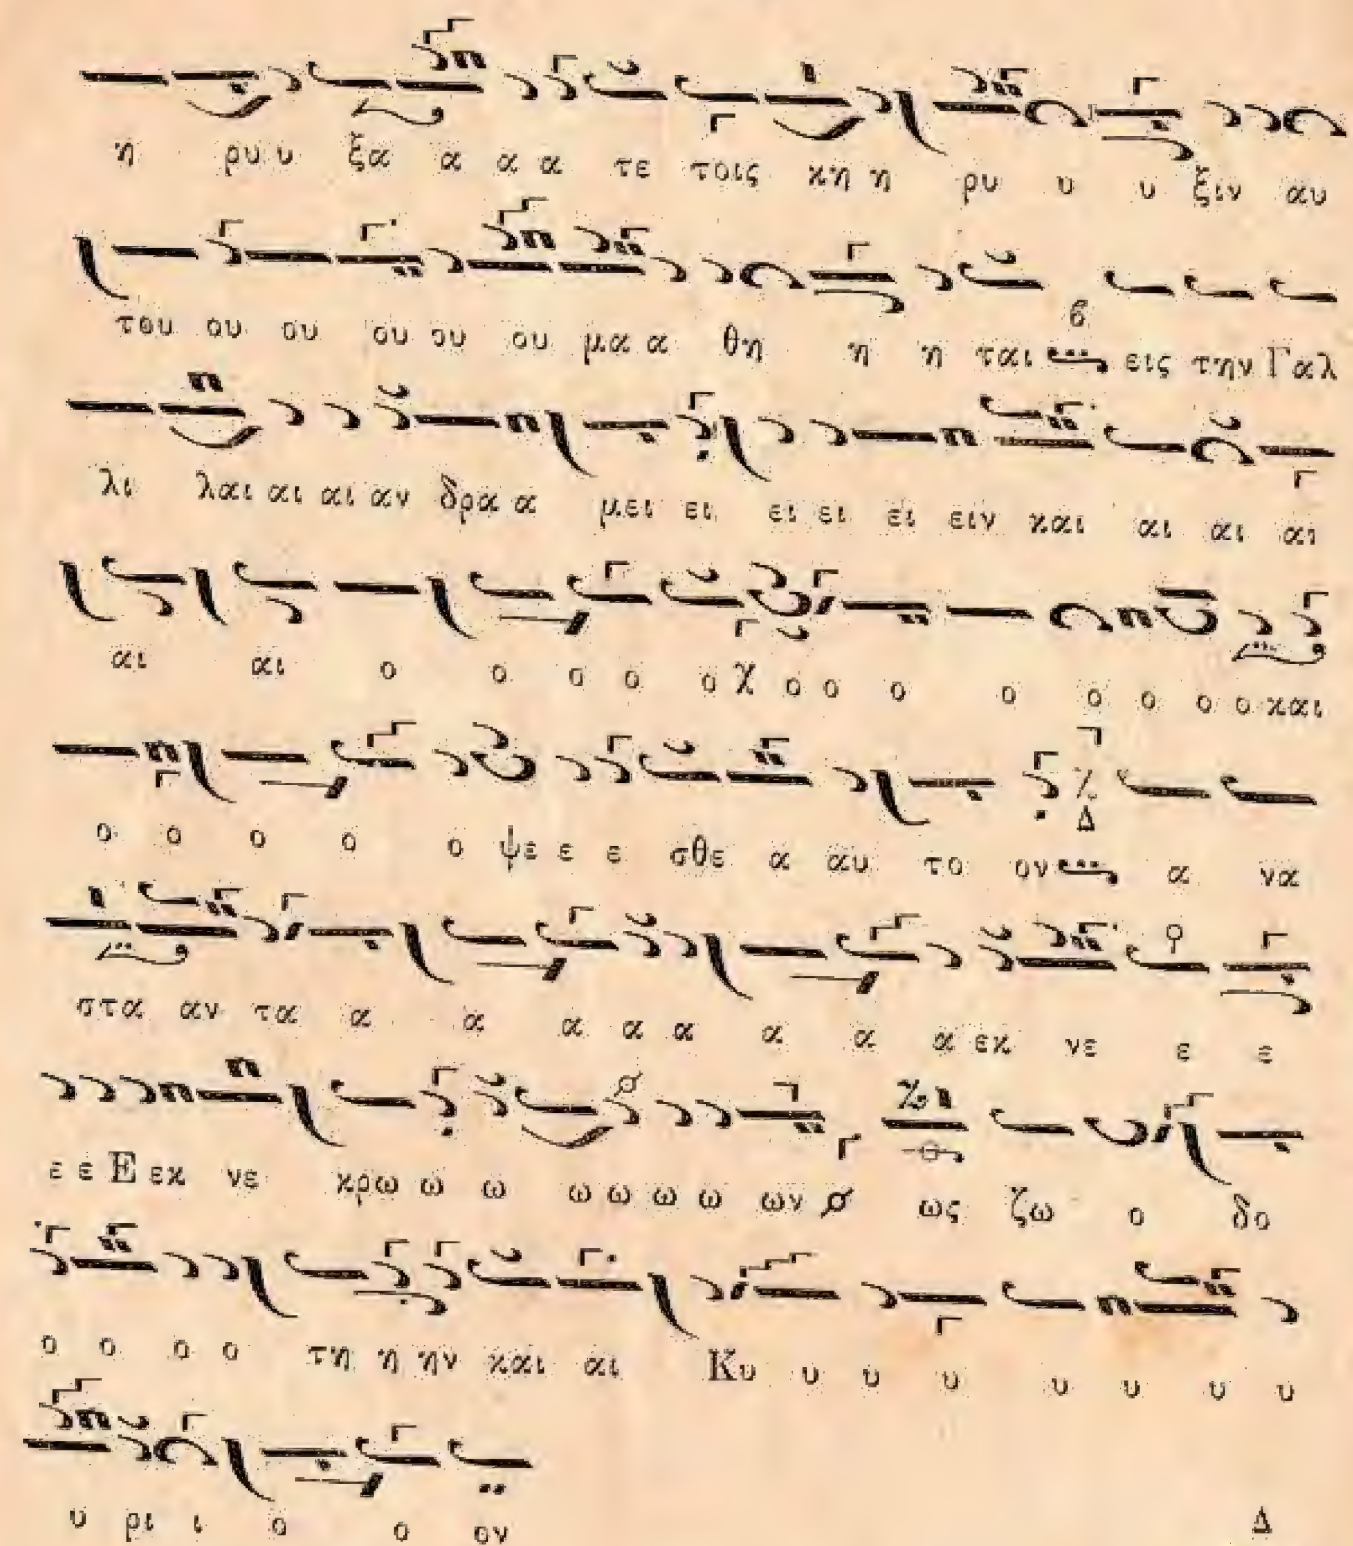 η ρυ υ ξα α α α τε τοις κη η ρυ υ υ ξιν αυ
του ου ου ου ου ου μα α θη η η ται εις την Γαλ
λι λαι αι αι αν δρα α μει ει ει ει ει ειν και αι αι αι
αι αι ο ο ο ο ο χ ο ο ο ο ο ο ο ο και
ο ο ο ο ο ψε ε ε σθε α αυ το ον α να
στα αν τα α α α α α α α α εκ νε ε ε
ε ε Ε εκ νε κρω ω ω ω ω ω ω ων ως ζω ο δο
ο ο ο ο τη η ην και αι Κυ υ υ υ υ υ υ υ
υ ρι ι ο ο ον Δ